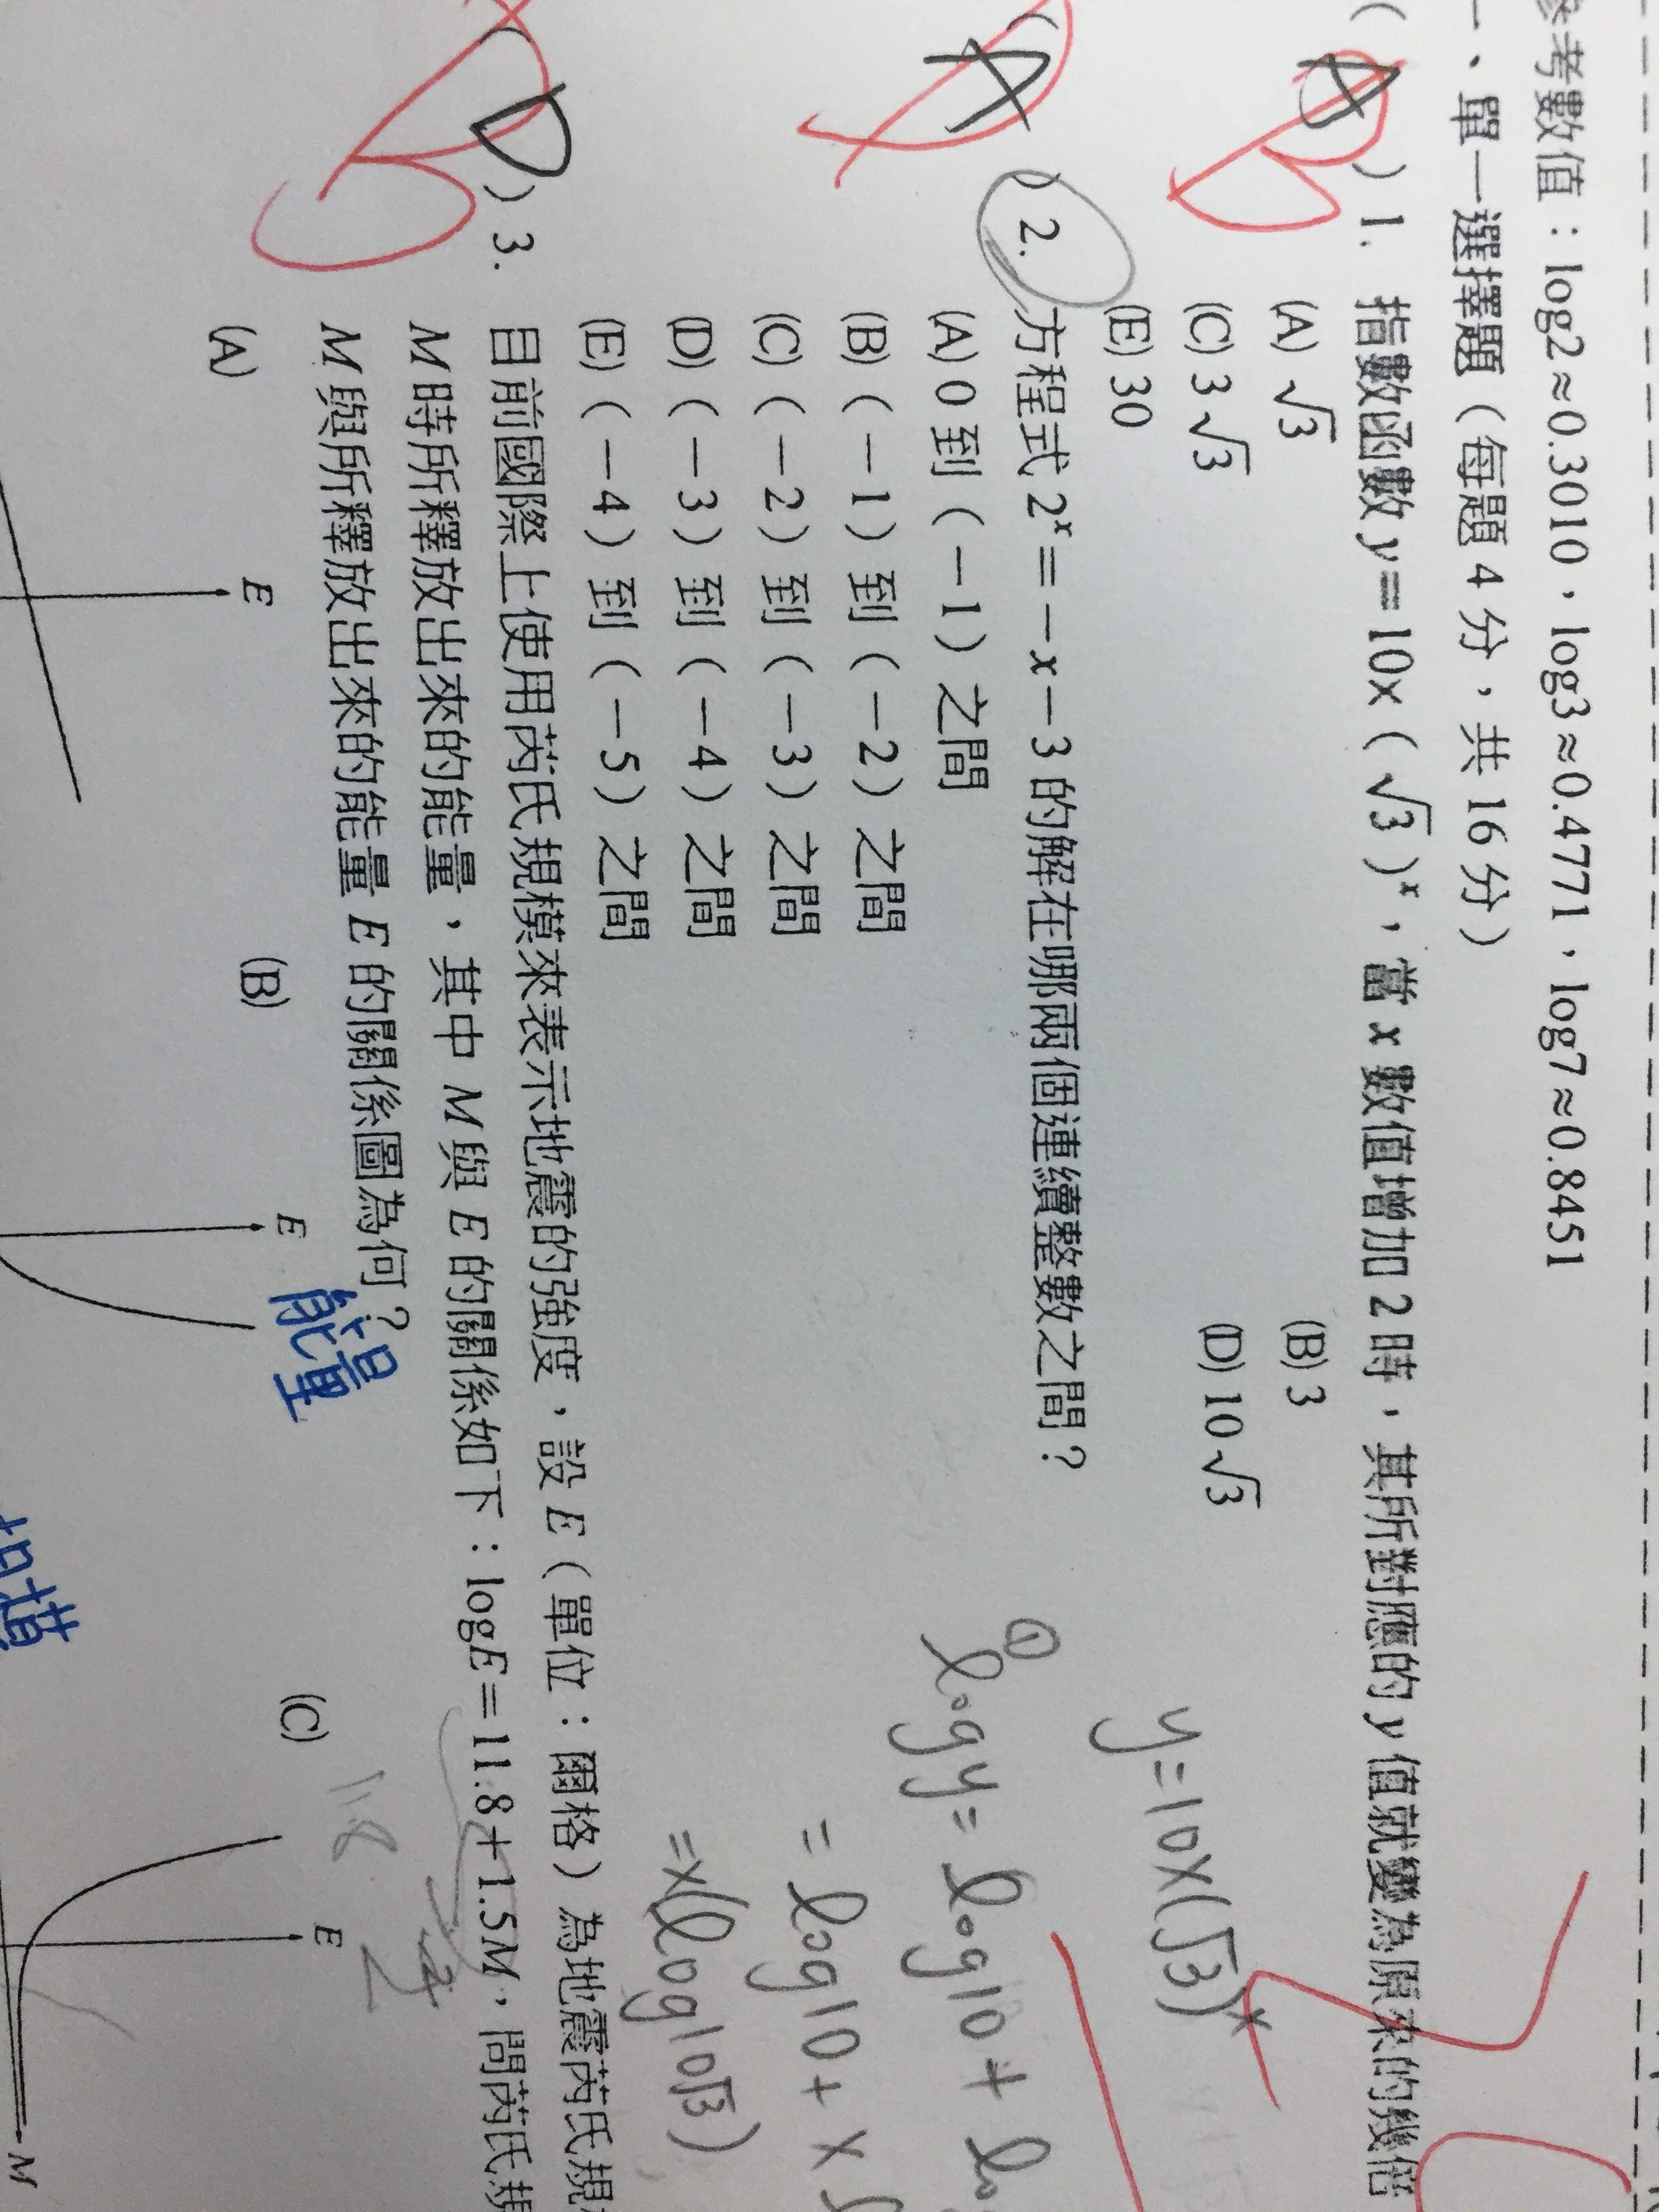 參考數值：log2≈0.3010，log3≈0.4771，log7≈0.8451
一、單一選擇題（每題 4 分，共 16 分）
( A ) 1. 指數函數 y＝10×（√3）ˣ，當 x 數值增加 2 時，其所對應的 y 值就變為原來的幾倍
B
(A) √3 (B) 3
(C) 3√3 (D) 10√3
(E) 30
y=10×(√3)ˣ
( A ) 2. 方程式 2ˣ＝－x－3 的解在哪兩個連續整數之間？
(A) 0 到（－1）之間
(B)（－1）到（－2）之間
(C)（－2）到（－3）之間
(D)（－3）到（－4）之間
(E)（－4）到（－5）之間
① logy= log10+
= log10+ x
=x(log10√3)
( D ) 3. 目前國際上使用芮氏規模來表示地震的強度，設 E（單位：爾格）為地震芮氏規
B
M 時所釋放出來的能量，其中 M 與 E 的關係如下：logE＝11.8＋1.5M，問芮氏規
M 與所釋放出來的能量 E 的關係圖為何？
能量
(A) (B) (C)
E E E
M